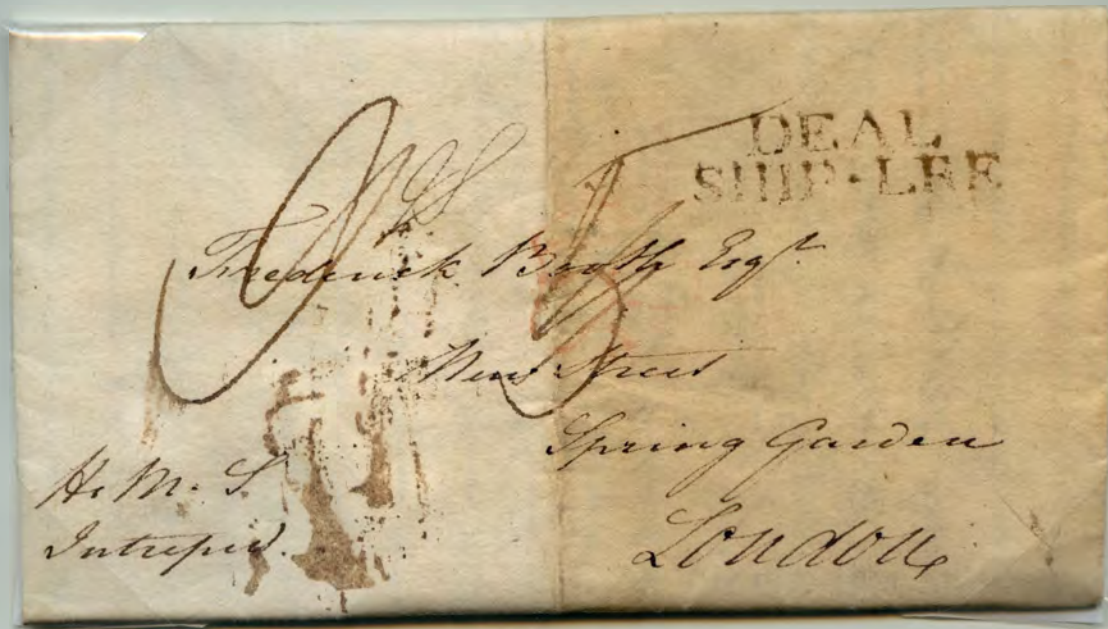 DEAL
SHIP·LRE
Frederick Booth Esqr.
New Street
Spring Garden
London
H. M. S.
Intrepid.